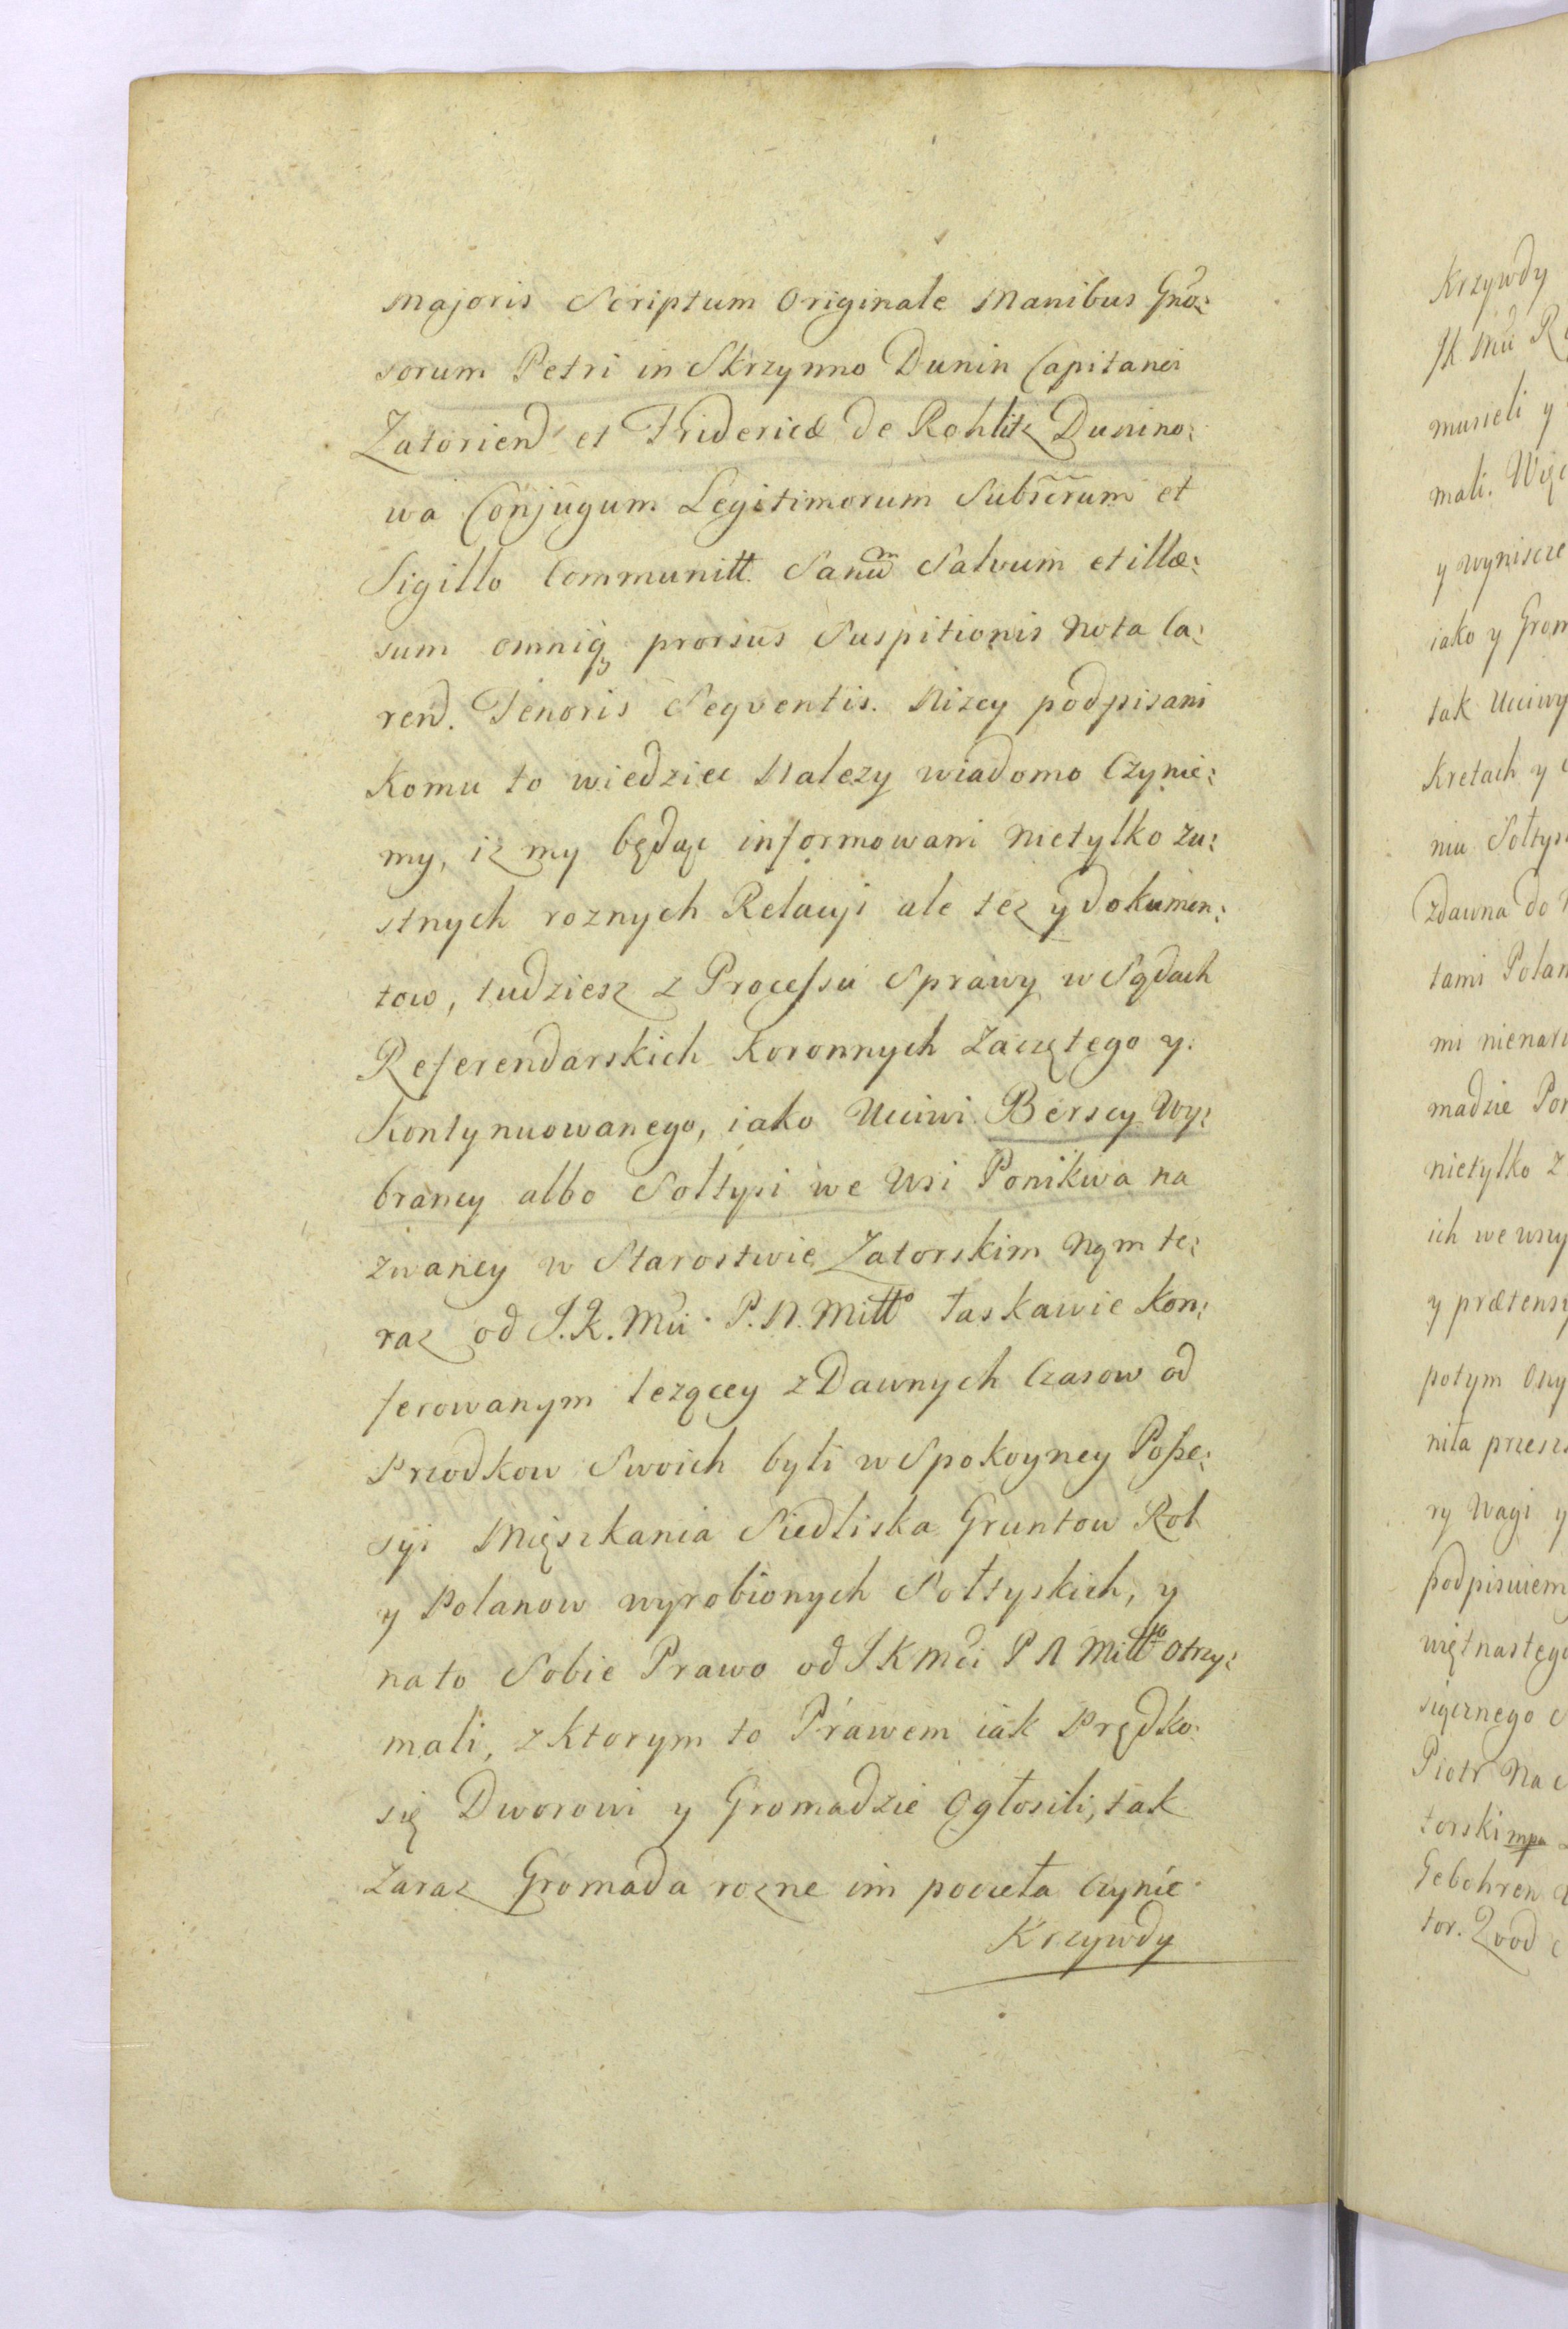 Majoris Scriptum Originale Manibus Gño:
sorum Petri in Skrzynno Dunin Capitanei
Zatorien̄ et Fridericæ de Rohlitz Dunino:
wa Conjugum Legitimorum Subscrum et
Sigillo Communitt. Sanũ Salvum et illæ:
sum omniq₃ prorsus Suspitionis Nota Ca:
ren. Tenoris Seqventis. Nizey podpisani
Komu to wiedziec Nalezy wiadomo Czynie:
my, iz my będąc informowani Nietylko zu:
stnych roznych Relacyi ale tez y dokumen:
tow, tudziesz z Processu Sprawy w Sądach
Referendarskich Koronnych Zaczętego y
Kontynuowanego, iako Uciwi Berscy Wy:
brancy albo Sołtysi we Wsi Ponikwa na
zwaney w Starostwie Zatorskim Nąm te:
raz od J.K.Mci P.N.Mitto łaskawie kon:
ferowanym lezącey z Dawnych Czasow od
Przodkow Swoich byli w Spokoyney Posse:
syi Mięszkania Siedliska Gruntow Rol
y Polanow wyrobionych Sołtyskich, y
na to Sobie Prawo od J K Mci P N Mitto Otrzy:
mali, z ktorym to Prawem iak Prędko
się Dworowi y Gromadzie Ogłosili, tak
Zaraz Gromada rozne im poczeła Czynić
Krzywdy
Krzywdy
JK Mci
musieli y
mali.
y wyniscze
iako y Grom
tak Uciwy
Kretach y
niu Sołtys
zdawna do
tami Polan
mi
madzie Pon
nietylko z
ich we wszy
y prætensy
potym
niła przesz
ry Wagi y
podpisuiem
więtnastego
siącznego
Piotr Na
torski mpa
Gebohren
tor.